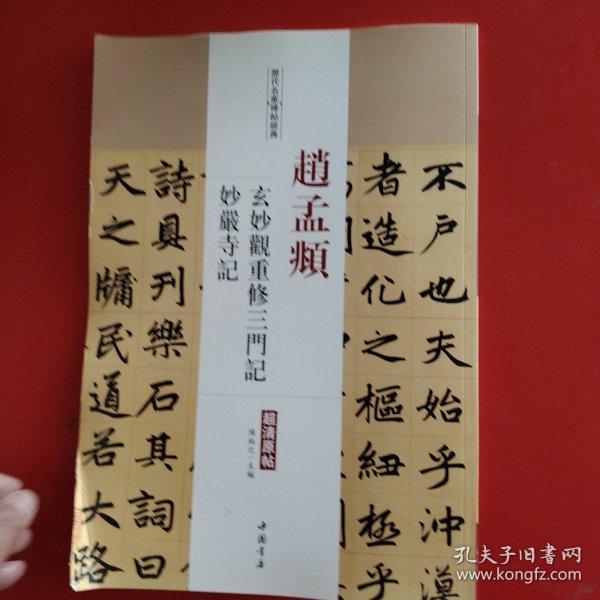 歷代名家碑帖經典
趙孟頫
玄妙觀重修三門記
妙嚴寺記
超清原帖
陳裕之·主編
中國書店
不戶也夫始乎沖漠
者造化之樞紐極乎
詩具刋樂石其詞曰
天之牖民道若大路
孔夫子旧书网
www.kongfz.com